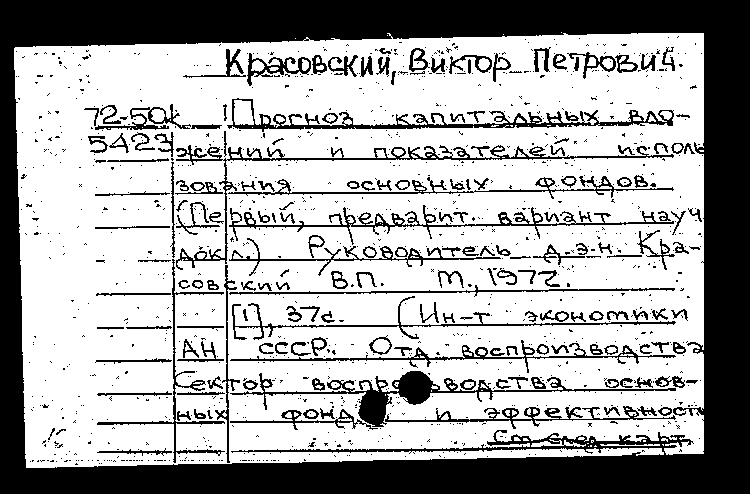 Красовский, Виктор Петрович.
72-50k Прогноз капитальных вло-
5423 жений и показателей исполь
зования основных фондов.
(Первый, предварит. вариант науч
докл.) Руководитель д.э.н. Кра-
совский В.П. М., 1972.
[1], 37с. (Ин-т экономики
АН СССР. Отд. воспроизводства
Сектор воспроизводства основ-
ных фонд и эффективность
См след. карт.